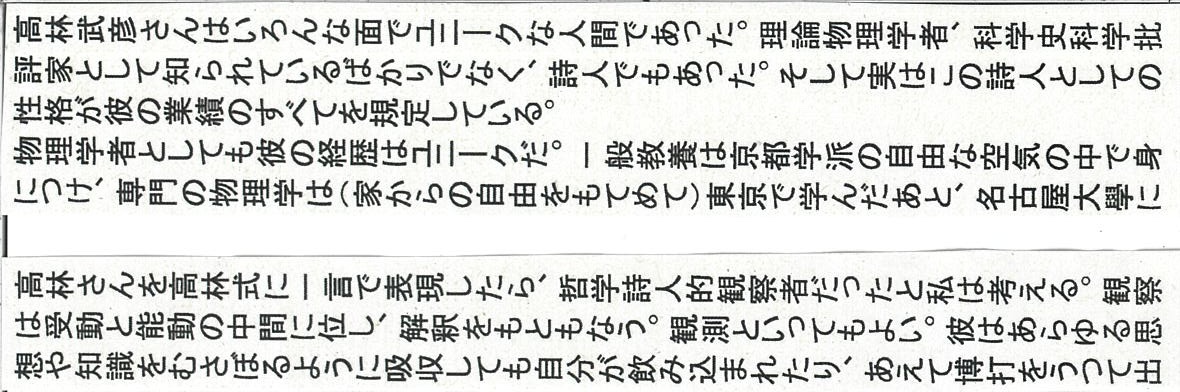 高林武彦さんはいろんな面でユニークな人間であった。理論物理学者、科学史科学批
評家として知られているばかりでなく、詩人でもあった。そして実はこの詩人としての
性格が彼の業績のすべてを規定している。
物理学者としても彼の経歴はユニークだ。一般教養は京都学派の自由な空気の中で身
につけ、専門の物理学は(家からの自由をもてめて)東京で学んだあと、名古屋大學に
高林さんを高林式に一言で表現したら、哲学詩人的観察者だったと私は考える。観察
は受動と能動の中間に位し、解釈をもともなう。観測といってもよい。彼はあらゆる思
想や知識をむさぼるように吸収しても自分が飲み込まれたり、あえて博打をうつて出